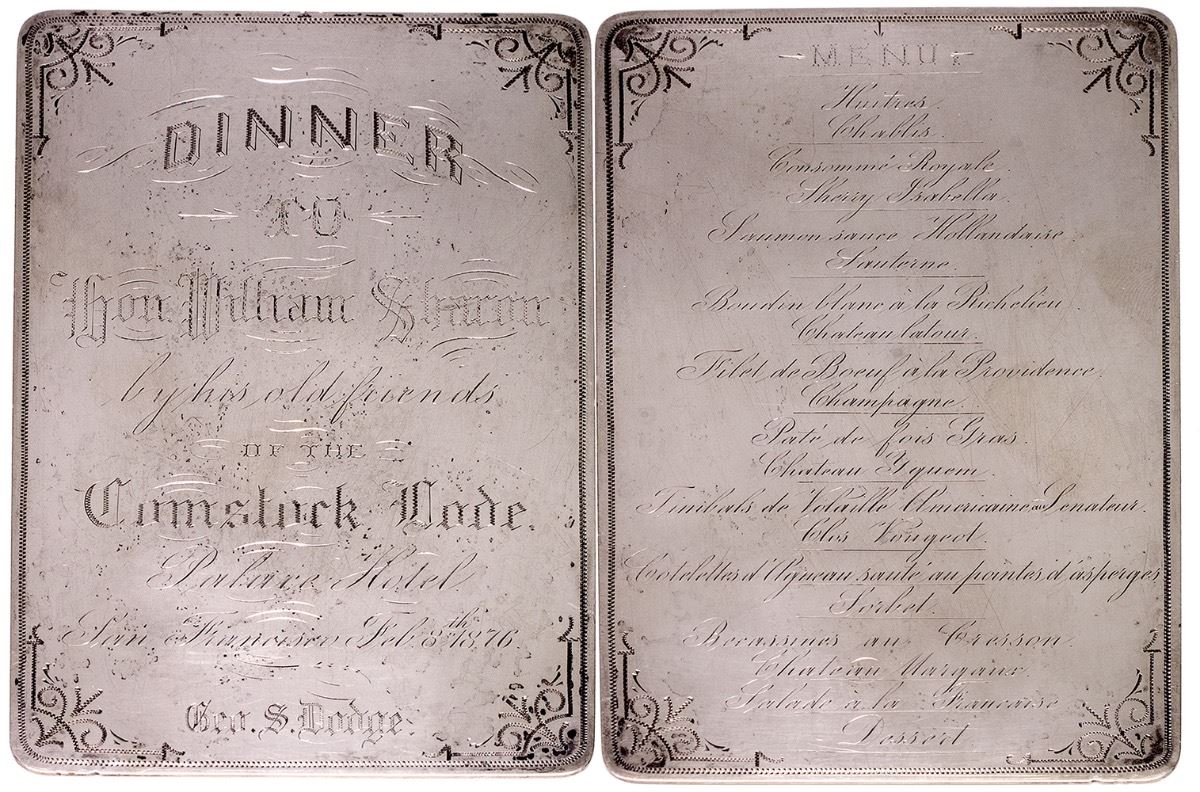 DINNER
TO
Hon. William Sharon
by his old friends
OF THE
Comstock Lode.
Palace Hotel
San Francisco Feb. 8th 1876.
Geo. S. Dodge.
MENU
Huitres.
Chablis.
Consommé Royale.
Sherry Isabella.
Saumon sauce Hollandaise
Sauterne.
Boudin blanc à la Richelieu.
Chateau latour.
Filet de Boeuf à la Providence.
Champagne.
Paté de fois Gras.
Chateau Yquem.
Timbals de Volaille Americaine au Senateur.
Clos Vougeot.
Cotelettes d'Agneau sauté au pointes d'asperges
Sorbet.
Becassines au Cresson.
Chateau Margaux.
Salade à la Francaise
Dessert